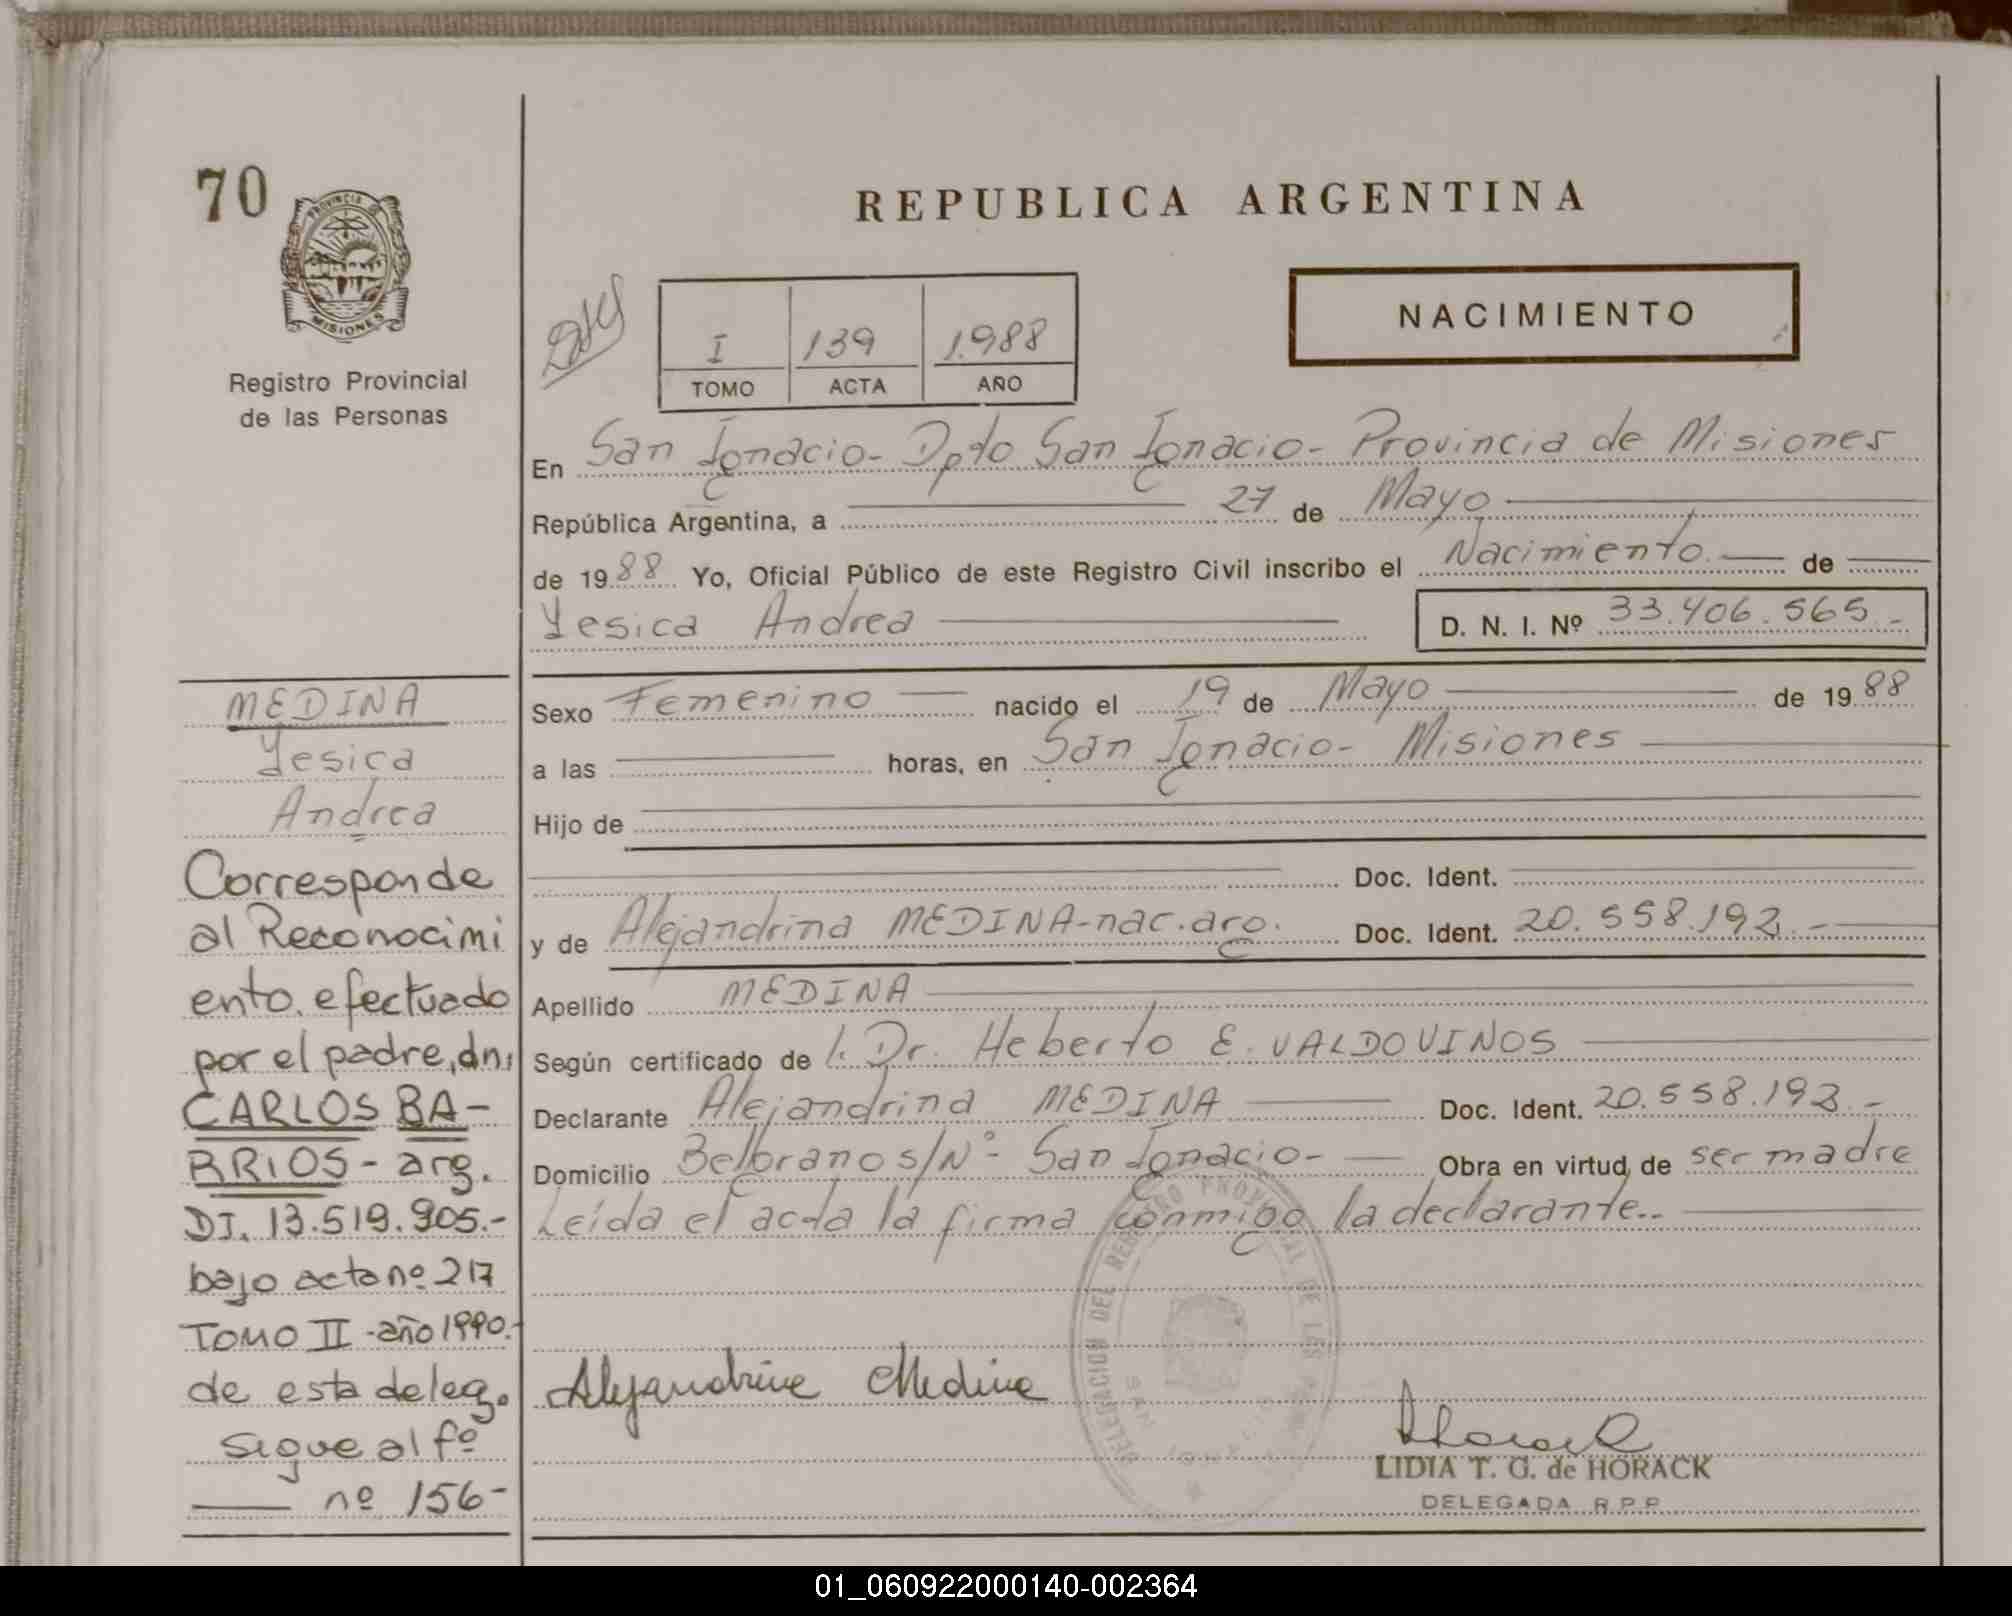 70
PROVINCIA DE
MISIONES
Registro Provincial
de las Personas
REPUBLICA ARGENTINA
NACIMIENTO
I 139 1.988
TOMO ACTA AÑO
En San Ignacio- Dpto San Ignacio- Provincia de Misiones
República Argentina, a 27 de Mayo
de 1988 Yo, Oficial Público de este Registro Civil inscribo el Nacimiento. de
Yesica Andrea D. N. I. Nº 33.406.565.-
Sexo Femenino nacido el 19 de Mayo de 1988
a las horas, en San Ignacio- Misiones
Hijo de
Doc. Ident.
y de Alejandrina MEDINA-nac.arg. Doc. Ident. 20.558.192.-
Apellido MEDINA
Según certificado de l. Dr. Heberto E. VALDOVINOS
Declarante Alejandrina MEDINA Doc. Ident. 20.558.192.-
Domicilio Belgrano s/Nº- San Ignacio- Obra en virtud de ser madre
Leída el acta la firma conmigo la declarante.-
Alejandrina Medina
DELEGACION DEL REGISTRO PROVINCIAL DE LAS
SAN IGNACIO
LIDIA T. G. de HORACK
DELEGADA R.P.P.
MEDINA
Yesica
Andrea
Corresponde
al Reconocimi
ento efectuado
por el padre, dn:
CARLOS BA-
RRIOS- arg.
DI. 13.519.905.-
bajo acta nº 217
TOMO II -año 1990.-
de esta deleg.
sigue al fº
nº 156-
01_060922000140-002364